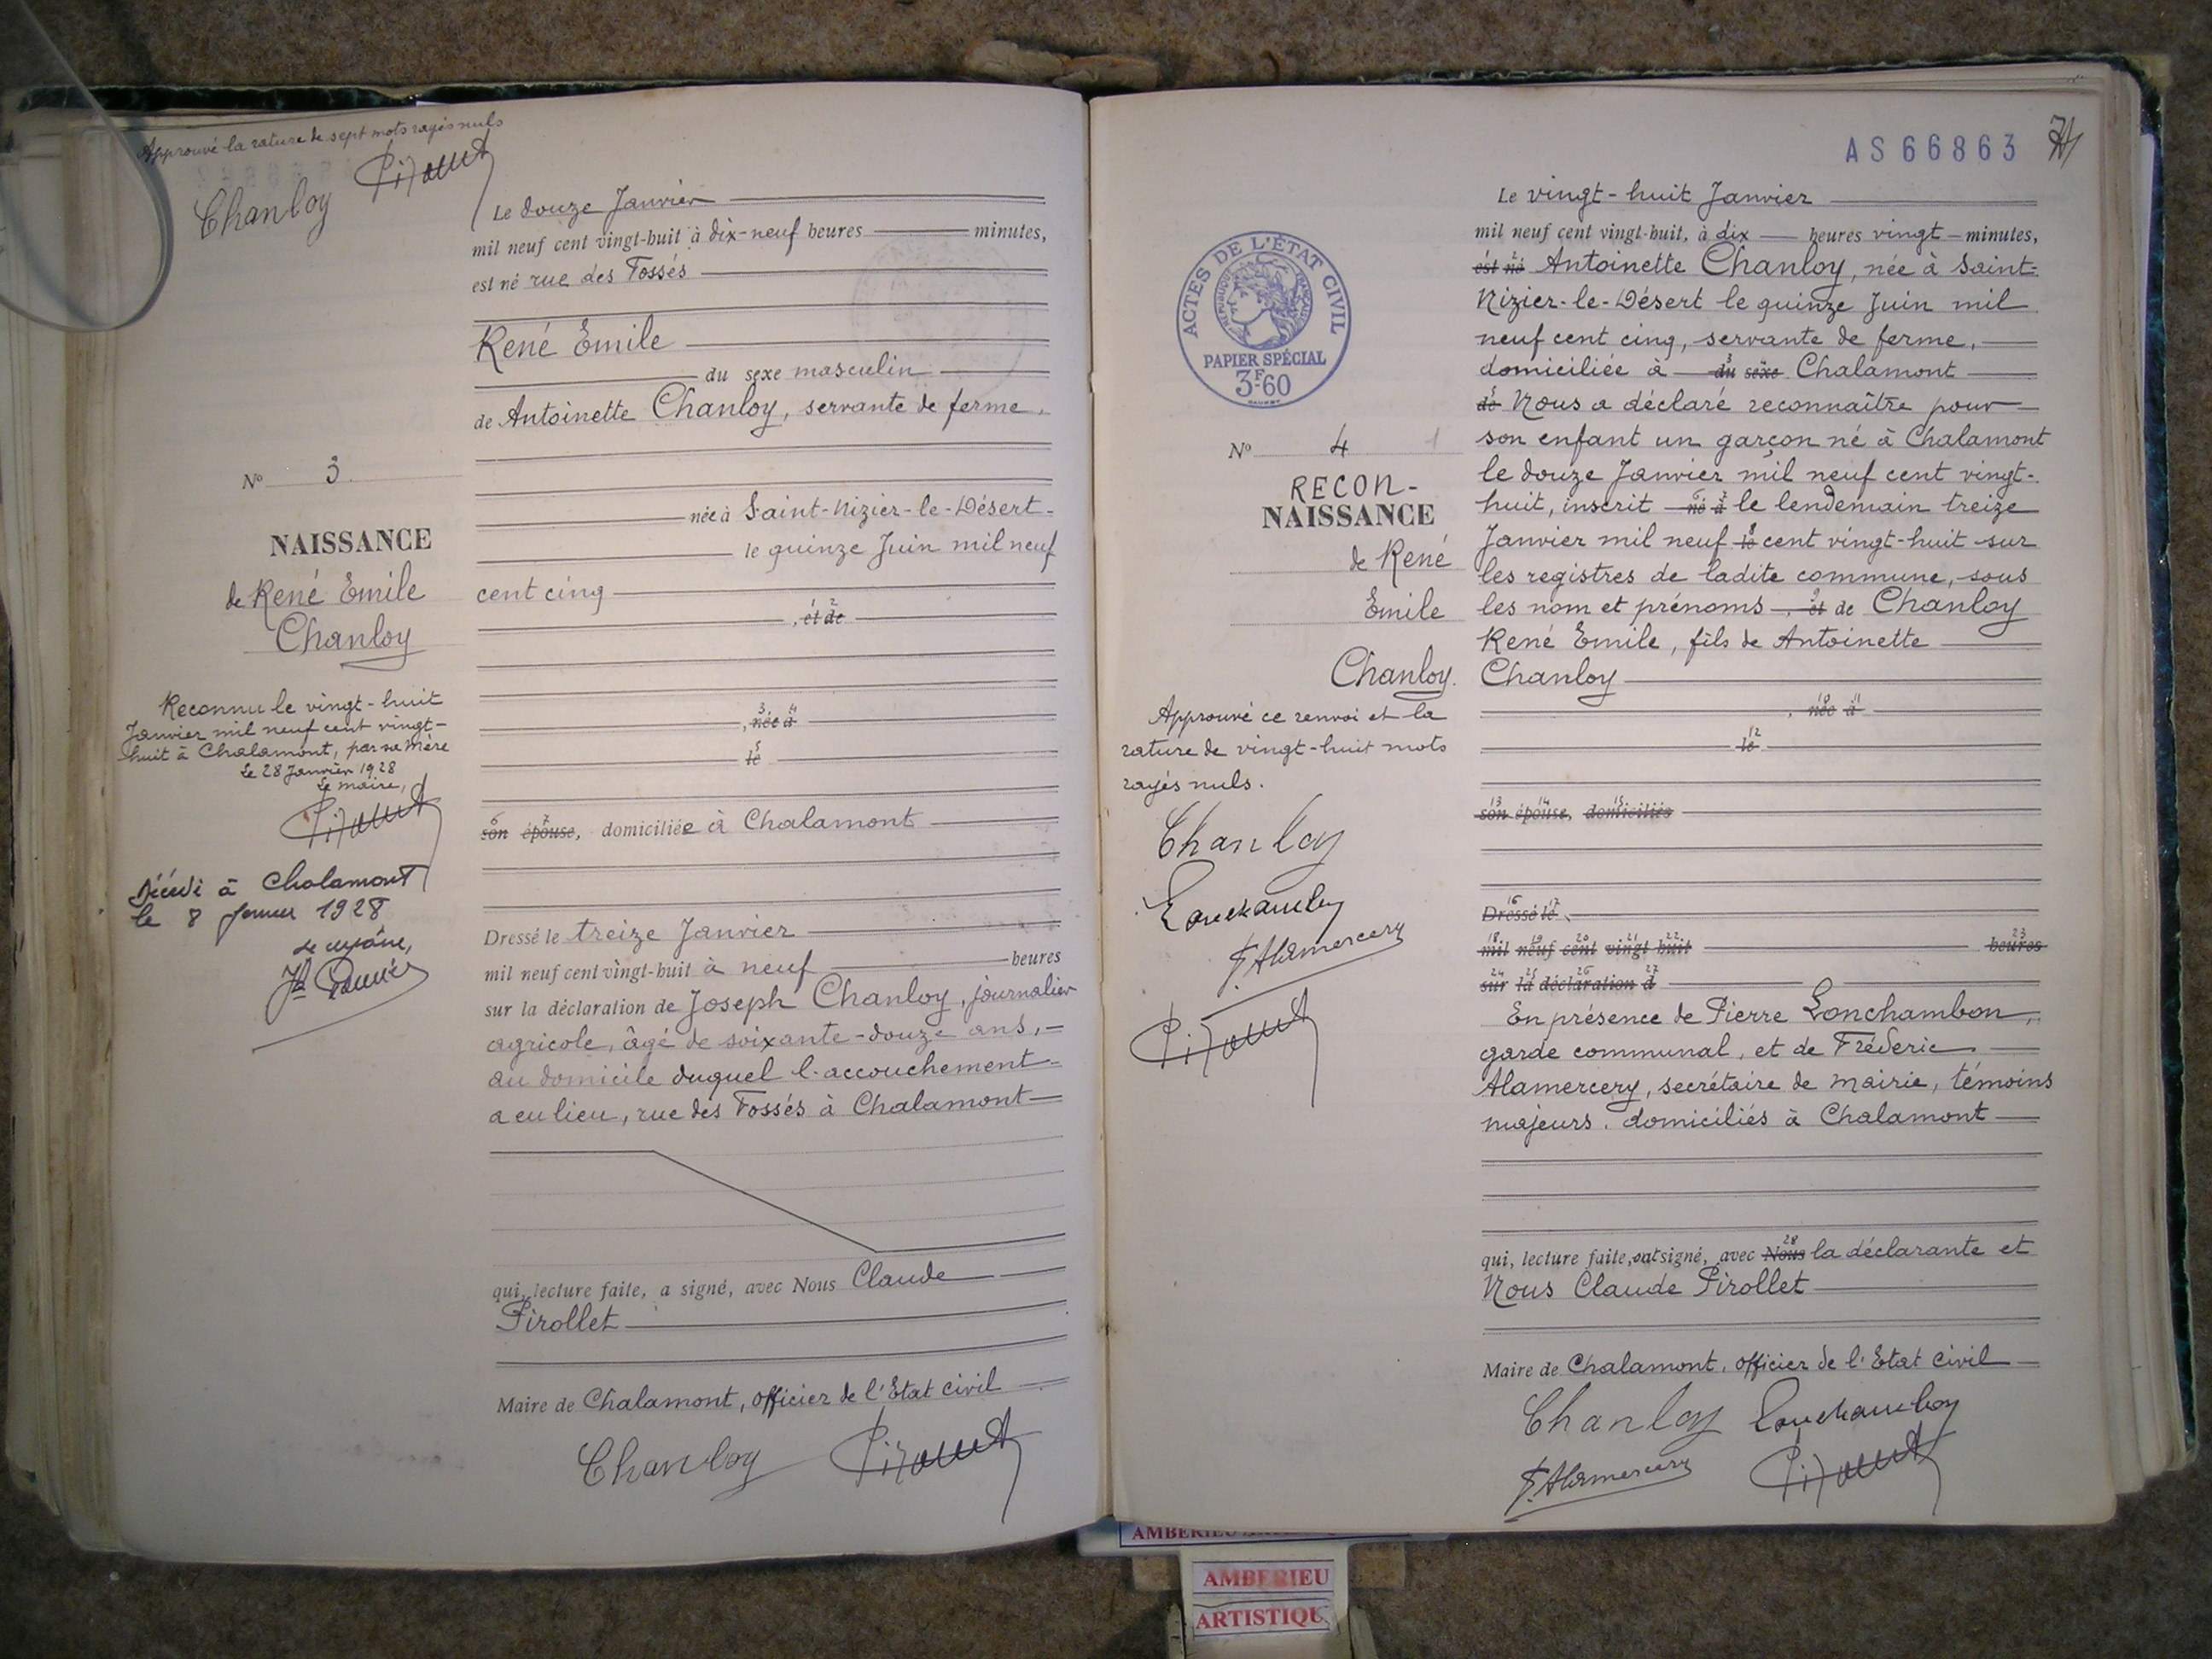 Approuvé la rature de sept mots rayés nuls
Chanloy
Le douze Janvier
mil neuf cent vingt-huit à dix-neuf heures minutes,
est né rue des Fossés
René Emile
du sexe masculin
de Antoinette Chanloy, servante de ferme,
née à Saint-Nizier-le-Désert
le quinze Juin mil neuf
cent cinq
, et de
, née à
le
son épouse, domiciliée à Chalamont
Dressé le treize Janvier
mil neuf cent vingt-huit à neuf heures
sur la déclaration de Joseph Chanloy, journalier
agricole, âgé de soixante-douze ans,
au domicile duquel l'accouchement
a eu lieu, rue des Fossés à Chalamont
qui, lecture faite, a signé, avec Nous Claude
Pirollet
Maire de Chalamont, officier de l'Etat civil
Chanloy
No 3
NAISSANCE
de René Emile
Chanloy
Reconnu le vingt-huit
Janvier mil neuf cent vingt-
huit à Chalamont, par sa Mère
Le 28 Janvier 1928
Le maire,
Décédé à Chalamont
le 8 1928
AS66863
ACTES DE L'ÉTAT CIVIL
RÉPUBLIQUE FRANÇAISE
PAPIER SPÉCIAL
3F60
No 4
RECON-
NAISSANCE
de René
Emile
Chanloy.
Approuvé ce renvoi et la
rature de vingt-huit mots
rayés nuls.
Chanloy
Lonchambon
F. Alamercery
Le vingt-huit Janvier
mil neuf cent vingt-huit, à dix heures vingt minutes,
est né Antoinette Chanloy, née à Saint-
Nizier-le-Désert le quinze Juin mil
neuf cent cinq, servante de ferme,
domiciliée à du sexe Chalamont
de Nous a déclaré reconnaître pour
son enfant un garçon né à Chalamont
le douze Janvier mil neuf cent vingt-
huit, inscrit né à le lendemain treize
Janvier mil neuf le cent vingt-huit sur
les registres de ladite commune, sous
les nom et prénoms, et de Chanloy
René Emile, fils de Antoinette
Chanloy
, née à
le
son épouse, domiciliés
Dressé le
mil neuf cent vingt huit heures
sur la déclaration d
En présence de Pierre Lonchambon,
garde communal, et de Fréderic
Alamercery, secrétaire de mairie, témoins
majeurs, domiciliés à Chalamont
qui, lecture faite, ont signé, avec Nous la déclarante et
Nous Claude Pirollet
Maire de Chalamont, officier de l'Etat civil
Chanloy Lonchambon
F. Alamercery
AMBERIEU
ARTISTIQU